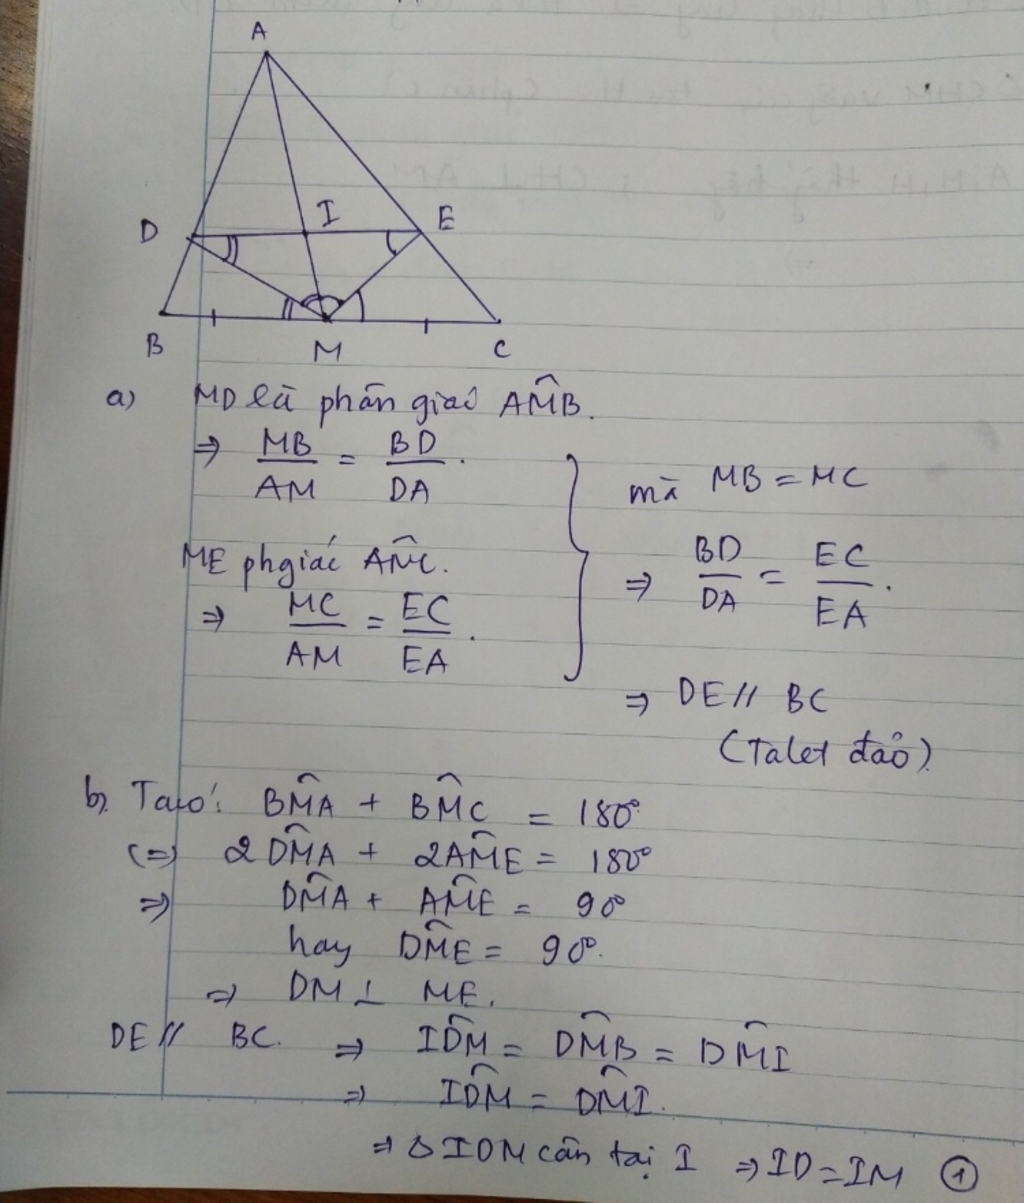 A
D
I
E
B
M
C
a) MD là phân giác AM̂B.
⇒ MB/AM = BD/DA.
ME phgiác AM̂C.
⇒ MC/AM = EC/EA.
mà MB = MC
⇒ BD/DA = EC/EA.
⇒ DE // BC
(Talet đảo)
b, Ta có: BM̂A + BM̂C = 180°
(=) 2DM̂A + 2AM̂E = 180°
⇒ DM̂A + AM̂E = 90
hay DM̂E = 90°.
⇒ DM ⊥ ME.
DE // BC. ⇒ ID̂M = DM̂B = DM̂I
⇒ ID̂M = DM̂I.
⇒ Δ IDM cân tại I ⇒ ID = IM ①